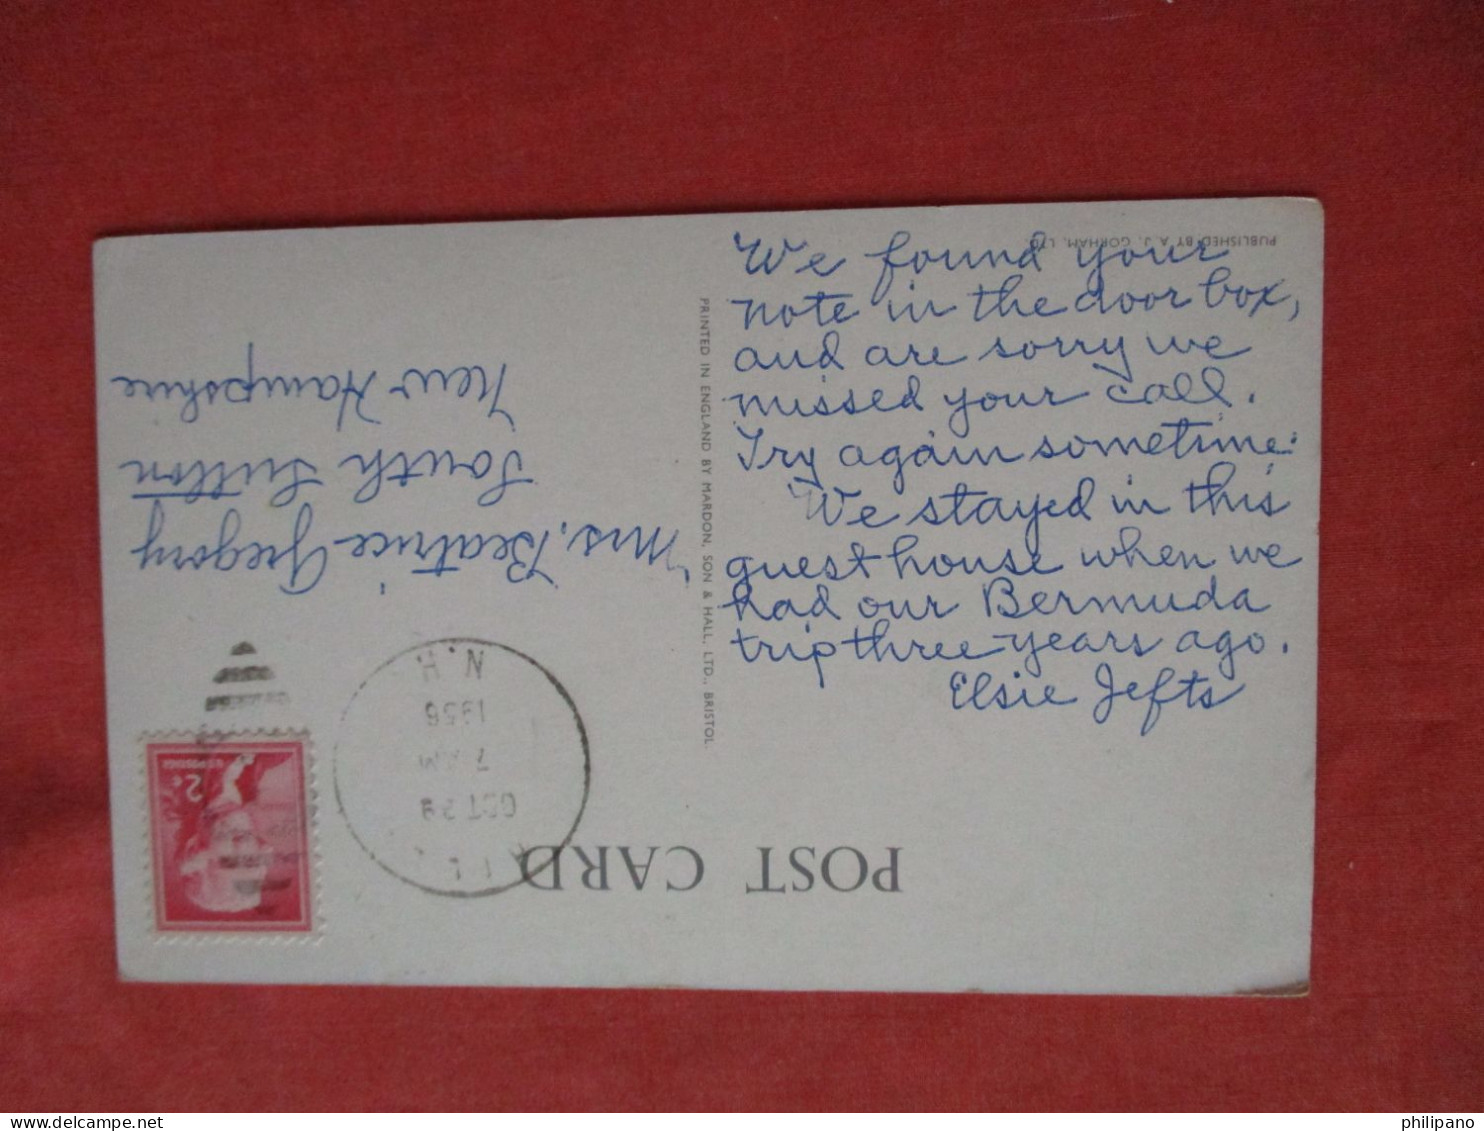 We found your
note in the door box,
and are sorry we
missed your call.
Try again sometime.
We stayed in this
guest house when we
had our Bermuda
trip three years ago.
Elsie Jefts
PUBLISHED BY A. J. GORHAM, LTD.
PRINTED IN ENGLAND BY MARDON, SON & HALL, LTD., BRISTOL
POST CARD
OCT 29
7 AM
1956
N.H.
2¢
U.S. POSTAGE
Mrs. Beatrice Gregory
South Sutton
New Hampshire
philipano